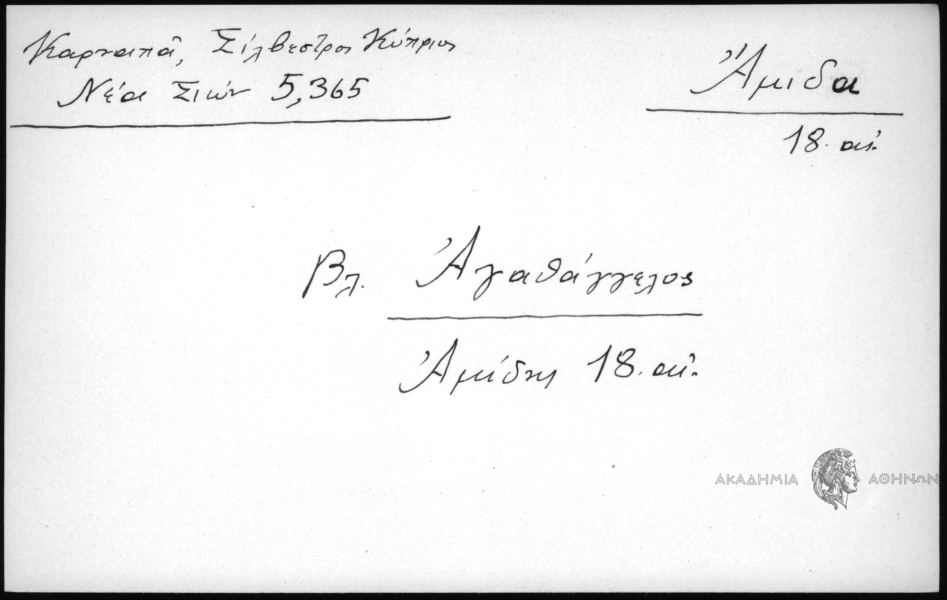 Καρναπᾶ, Σίλβεστρος Κύπριος
Νέα Σιών 5,365
Ἄμιδα
18. αἰ.
Βλ. Ἀγαθάγγελος
Ἀμίδης 18. αἰ.
ΑΚΑΔΗΜΙΑ ΑΘΗΝΩΝ